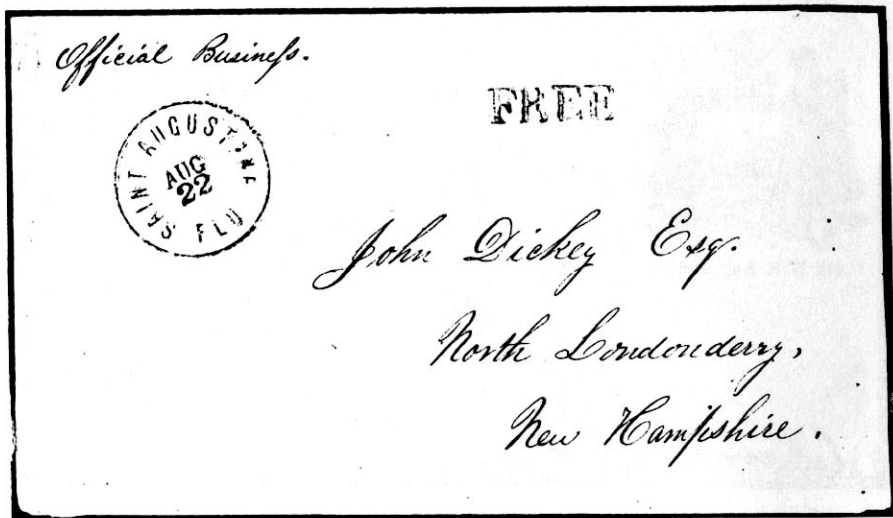 Official Business.
FREE
SAINT AUGUSTINE
AUG
22
FLU
John Dickey Esq.
North Londonderry,
New Hampshire.